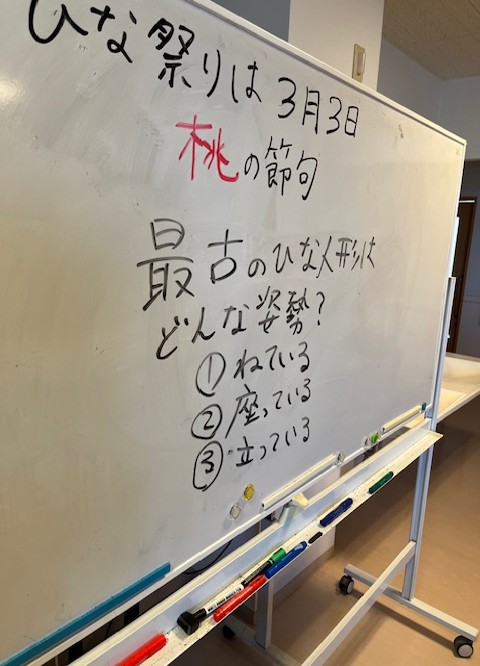 ひな祭りは 3月3日
桃の節句
最古のひな人形は
どんな姿勢?
① ねている
② 座っている
③ 立っている